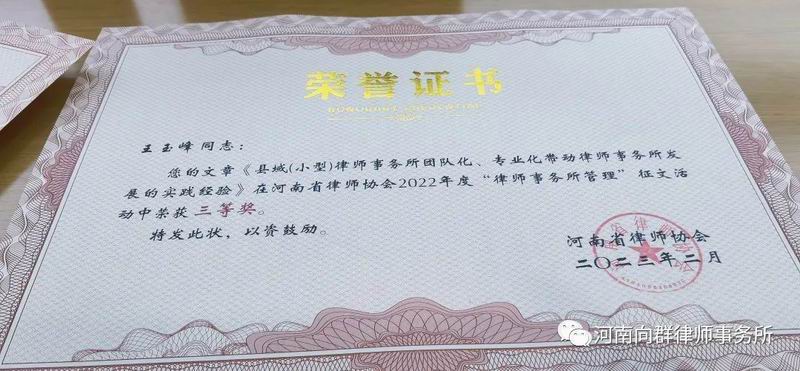 荣誉证书
HONORARY CREDENTIAL
王玉峰同志：
您的文章《县域(小型)律师事务所团队化、专业化带动律师事务所发
展的实践经验》在河南省律师协会2022年度“律师事务所管理”征文活
动中荣获三等奖。
特发此状，以资鼓励。
河南省律师协会
二〇二三年二月
河南向群律师事务所